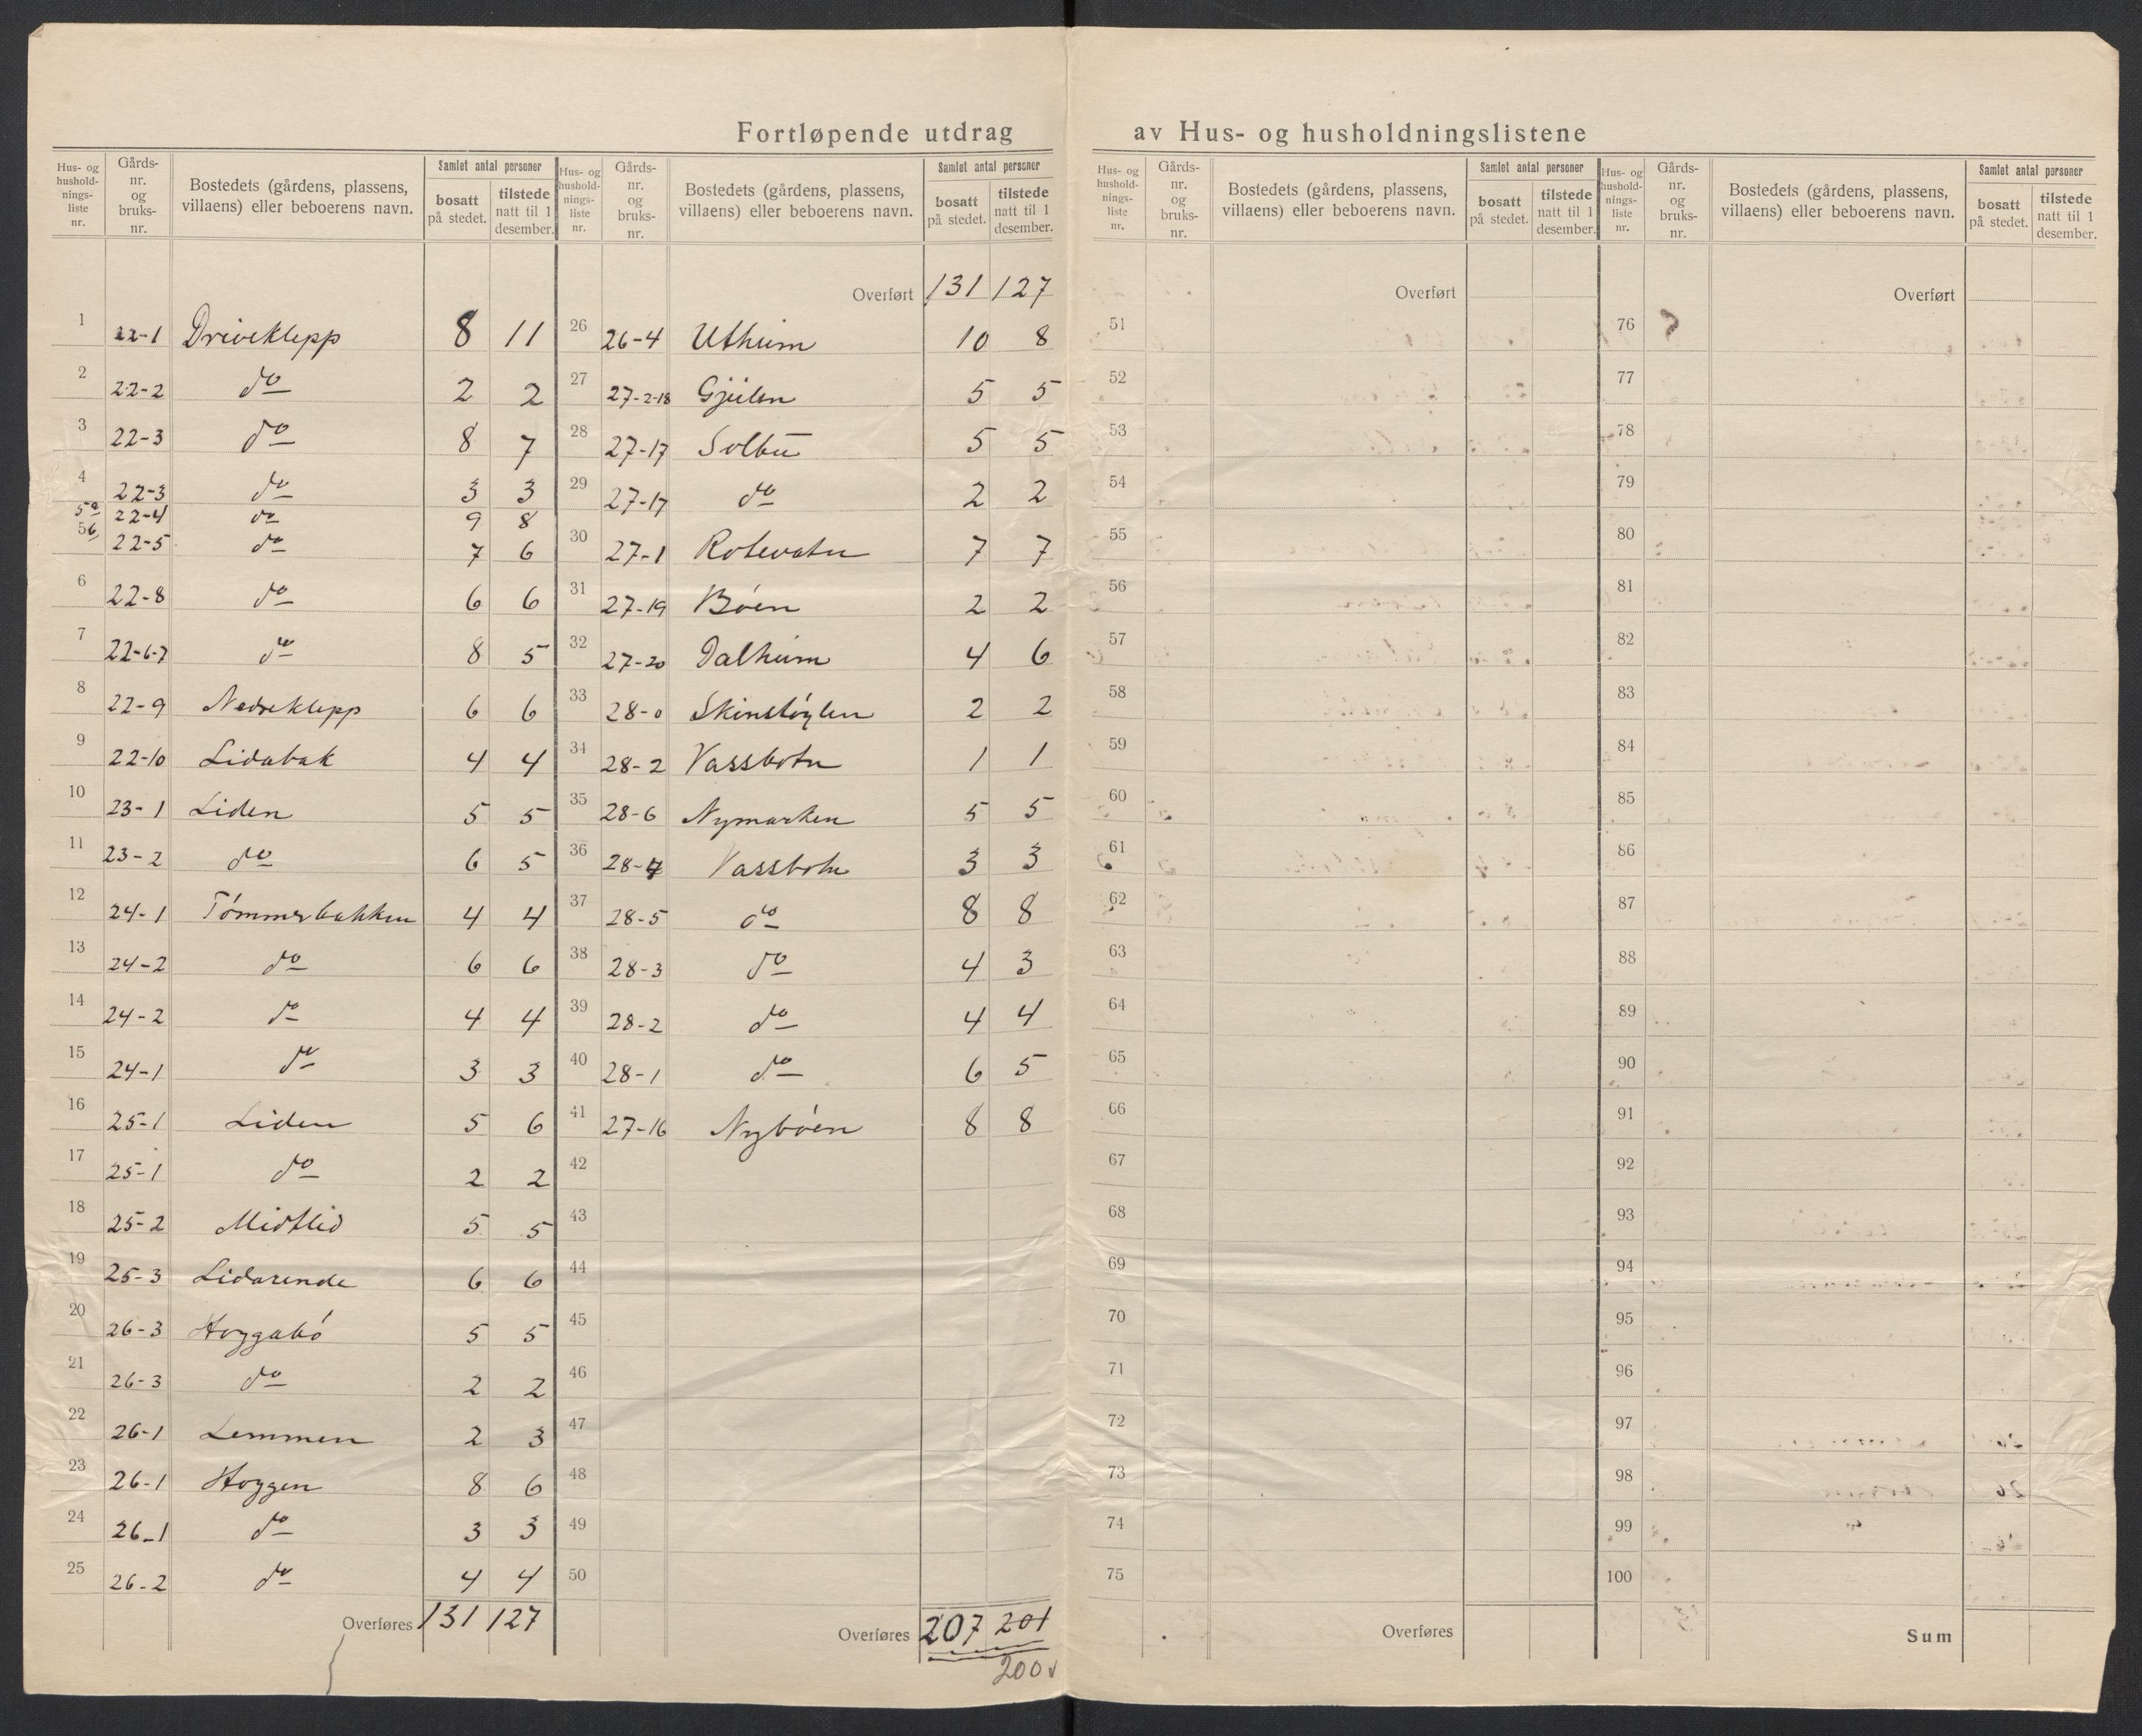 Fortløpende utdrag av Hus- og husholdningslistene
Hus- og husholdnings- liste nr. | Gårds- nr. og bruks- nr. | Bostedets (gårdens, plassens, villaens) eller beboerens navn. | Samlet antal personer | bosatt på stedet. | tilstede natt til 1 desember.
1 22-1 Driveklepp 8 11
2 22-2 do 2 2
3 22-3 do 8 7
4 22-3 do 3 3
5a 22-4 do 9 8
5b 22-5 do 7 6
6 22-8 do 6 6
7 22-6-7 do 8 5
8 22-9 Nedreklepp 6 6
9 22-10 Lidabak 4 4
10 23-1 Liden 5 5
11 23-2 do 6 5
12 24-1 Tømmerbakken 4 4
13 24-2 do 6 6
14 24-2 do 4 4
15 24-1 do 3 3
16 25-1 Liden 5 6
17 25-1 do 2 2
18 25-2 Midtlid 5 5
19 25-3 Lidarende 6 6
20 26-3 Hoggabø 5 5
21 26-3 do 2 2
22 26-1 Lemmen 2 3
23 26-1 Hoggen 8 6
24 26-1 do 3 3
25 26-2 do 4 4
Overføres 131 127
Hus- og husholdnings- liste nr. | Gårds- nr. og bruks- nr. | Bostedets (gårdens, plassens, villaens) eller beboerens navn. | Samlet antal personer | bosatt på stedet. | tilstede natt til 1 desember.
Overført 131 127
26 26-4 Utheim 10 8
27 27-2-18 Gjeilen 5 5
28 27-17 Solbu 5 5
29 27-17 do 2 2
30 27-1 Rotevatn 7 7
31 27-19 Bøen 2 2
32 27-20 Dalheim 4 6
33 28-0 Skinstøylen 2 2
34 28-2 Vassbotn 1 1
35 28-6 Nymarken 5 5
36 28-4 Vassbotn 3 3
37 28-5 do 8 8
38 28-3 do 4 3
39 28-2 do 4 4
40 28-1 do 6 5
41 27-16 Nybøen 8 8
42
43
44
45
46
47
48
49
50
Overføres 207 201
200 v
Hus- og husholdnings- liste nr. | Gårds- nr. og bruks- nr. | Bostedets (gårdens, plassens, villaens) eller beboerens navn. | Samlet antal personer | bosatt på stedet. | tilstede natt til 1 desember.
Overført
51
52
53
54
55
56
57
58
59
60
61
62
63
64
65
66
67
68
69
70
71
72
73
74
75
Overføres
Hus- og husholdnings- liste nr. | Gårds- nr. og bruks- nr. | Bostedets (gårdens, plassens, villaens) eller beboerens navn. | Samlet antal personer | bosatt på stedet. | tilstede natt til 1 desember.
Overført
76
77
78
79
80
81
82
83
84
85
86
87
88
89
90
91
92
93
94
95
96
97
98
99
100
Sum